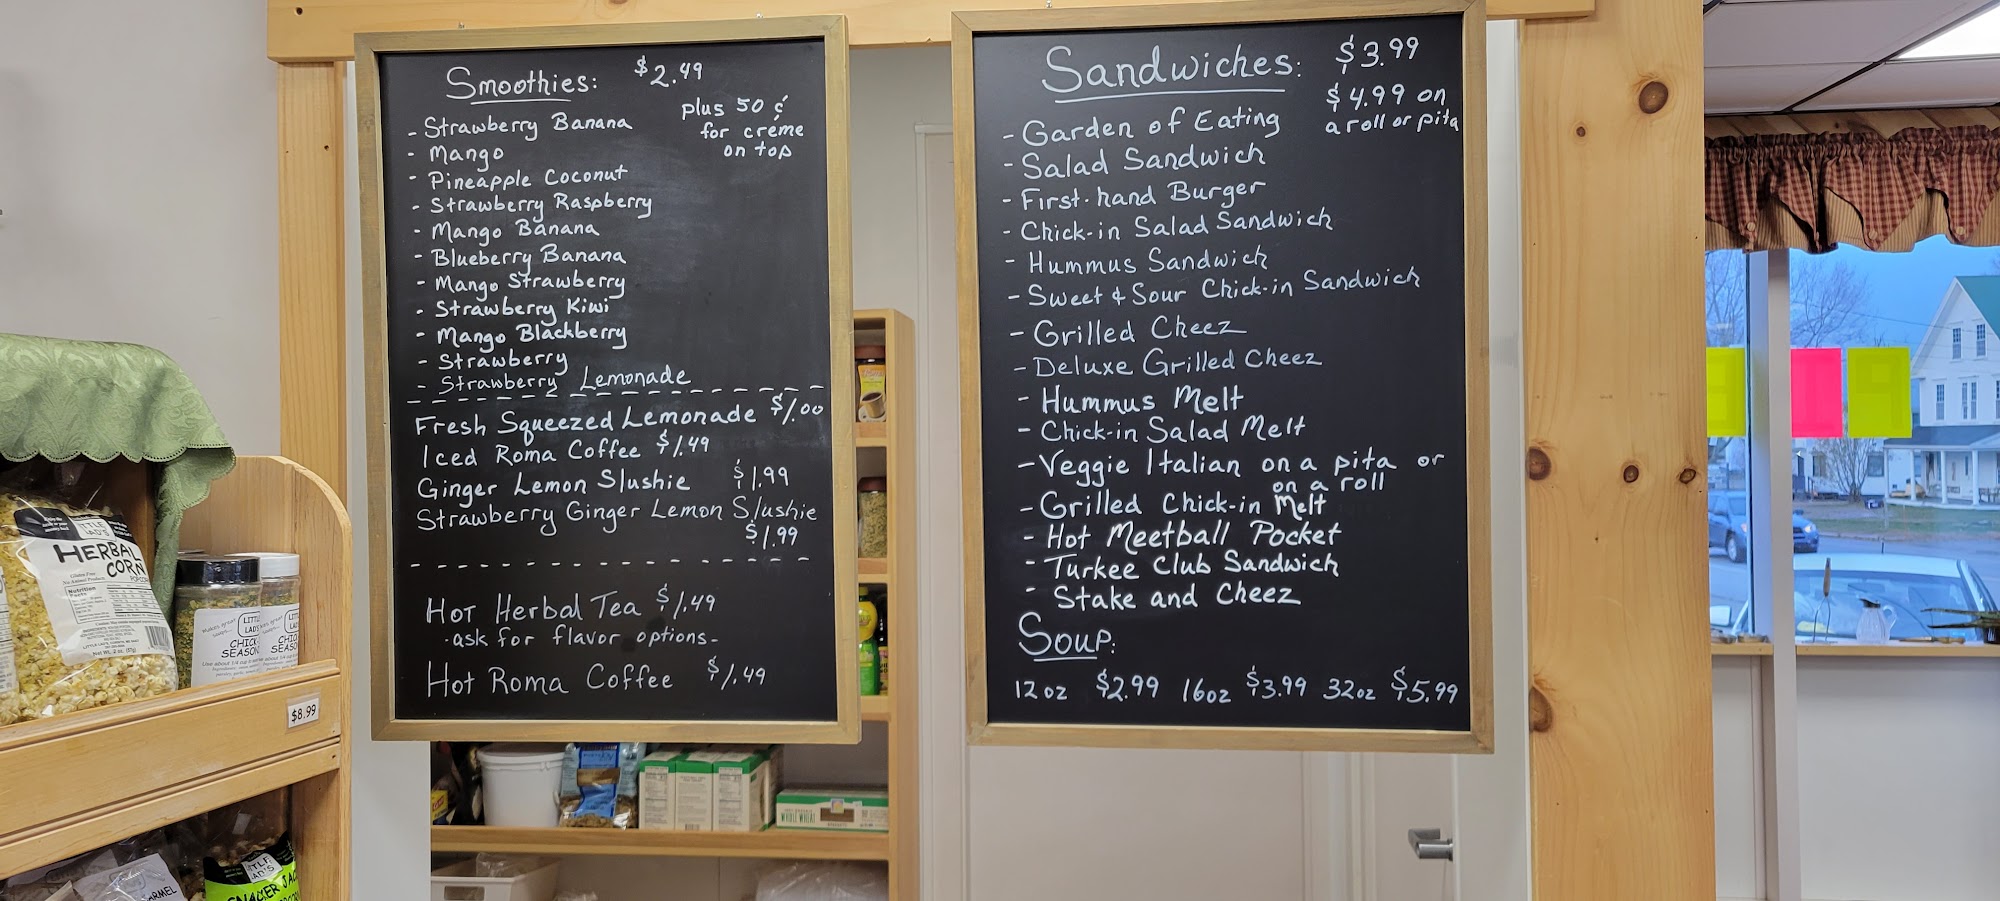 Smoothies: $2.49
plus 50¢
for creme
on top
- Strawberry Banana
- Mango
- Pineapple Coconut
- Strawberry Raspberry
- Mango Banana
- Blueberry Banana
- Mango Strawberry
- Strawberry Kiwi
- Mango Blackberry
- Strawberry
- Strawberry Lemonade
Fresh Squeezed Lemonade $1.00
Iced Roma Coffee $1.49
Ginger Lemon Slushie $1.99
Strawberry Ginger Lemon Slushie
$1.99
Hot Herbal Tea $1.49
·ask for flavor options-
Hot Roma Coffee $1.49
Sandwiches: $3.99
$4.99 on
a roll or pita
- Garden of Eating
- Salad Sandwich
- First-hand Burger
- Chick-in Salad Sandwich
- Hummus Sandwich
- Sweet & Sour Chick-in Sandwich
- Grilled Cheez
- Deluxe Grilled Cheez
- Hummus Melt
- Chick-in Salad Melt
- Veggie Italian on a pita or
on a roll
- Grilled Chick-in Melt
- Hot Meetball Pocket
- Turkee Club Sandwich
- Stake and Cheez
Soup:
12oz $2.99 16oz $3.99 32oz $5.99
HERBAL
CORN
POPCORN
Nutrition
Net Wt. 2 oz. (57g)
CHICK
SEASON
$8.99
WHOLE WHEAT